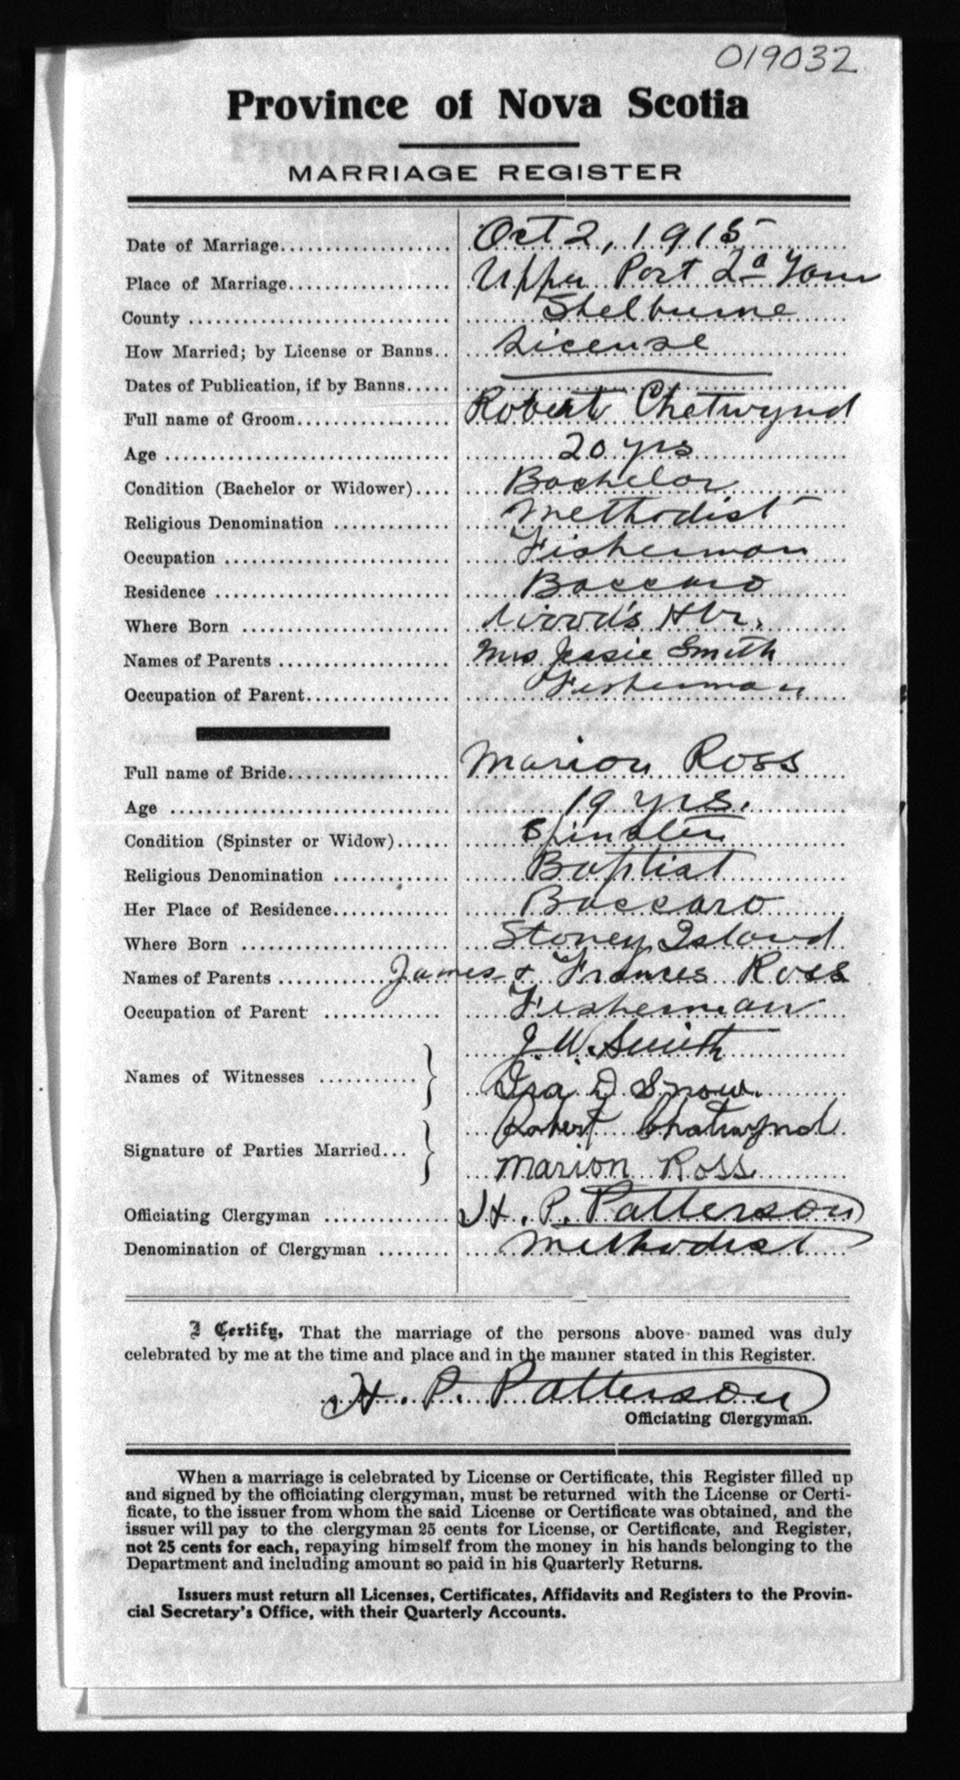 019032
Province of Nova Scotia
MARRIAGE REGISTER
Date of Marriage................... Oct 2, 1915
Place of Marriage.................. Upper Port La Tour
County ............................ Shelburne
How Married; by License or Banns.. License
Dates of Publication, if by Banns.....
Full name of Groom................. Robert Chetwynd
Age ............................... 20 yrs
Condition (Bachelor or Widower).... Bachelor
Religious Denomination ............ Methodist
Occupation ........................ Fisherman
Residence ......................... Baccaro
Where Born ........................ Wood's Hbr.
Names of Parents .................. Mrs Jessie Smith
Occupation of Parent............... Fisherman
Full name of Bride................. Marion Ross
Age ............................... 19 yrs.
Condition (Spinster or Widow)...... Spinster
Religious Denomination ............ Baptist
Her Place of Residence............. Baccaro
Where Born ........................ Stoney Island
Names of Parents .......... James & Frances Ross
Occupation of Parent ............ Fisherman
J. W. Smith
Names of Witnesses ...........
Ira D Snow.
Robert Chatwynd
Signature of Parties Married...
Marion Ross
Officiating Clergyman ............. H. P. Patterson
Denomination of Clergyman ........ Methodist
I Certify, That the marriage of the persons above named was duly
celebrated by me at the time and place and in the manner stated in this Register.
H. P. Patterson
Officiating Clergyman.
When a marriage is celebrated by License or Certificate, this Register filled up
and signed by the officiating clergyman, must be returned with the License or Certi-
ficate, to the issuer from whom the said License or Certificate was obtained, and the
issuer will pay to the clergyman 25 cents for License, or Certificate, and Register,
not 25 cents for each, repaying himself from the money in his hands belonging to the
Department and including amount so paid in his Quarterly Returns.
Issuers must return all Licenses, Certificates, Affidavits and Registers to the Provin-
cial Secretary's Office, with their Quarterly Accounts.